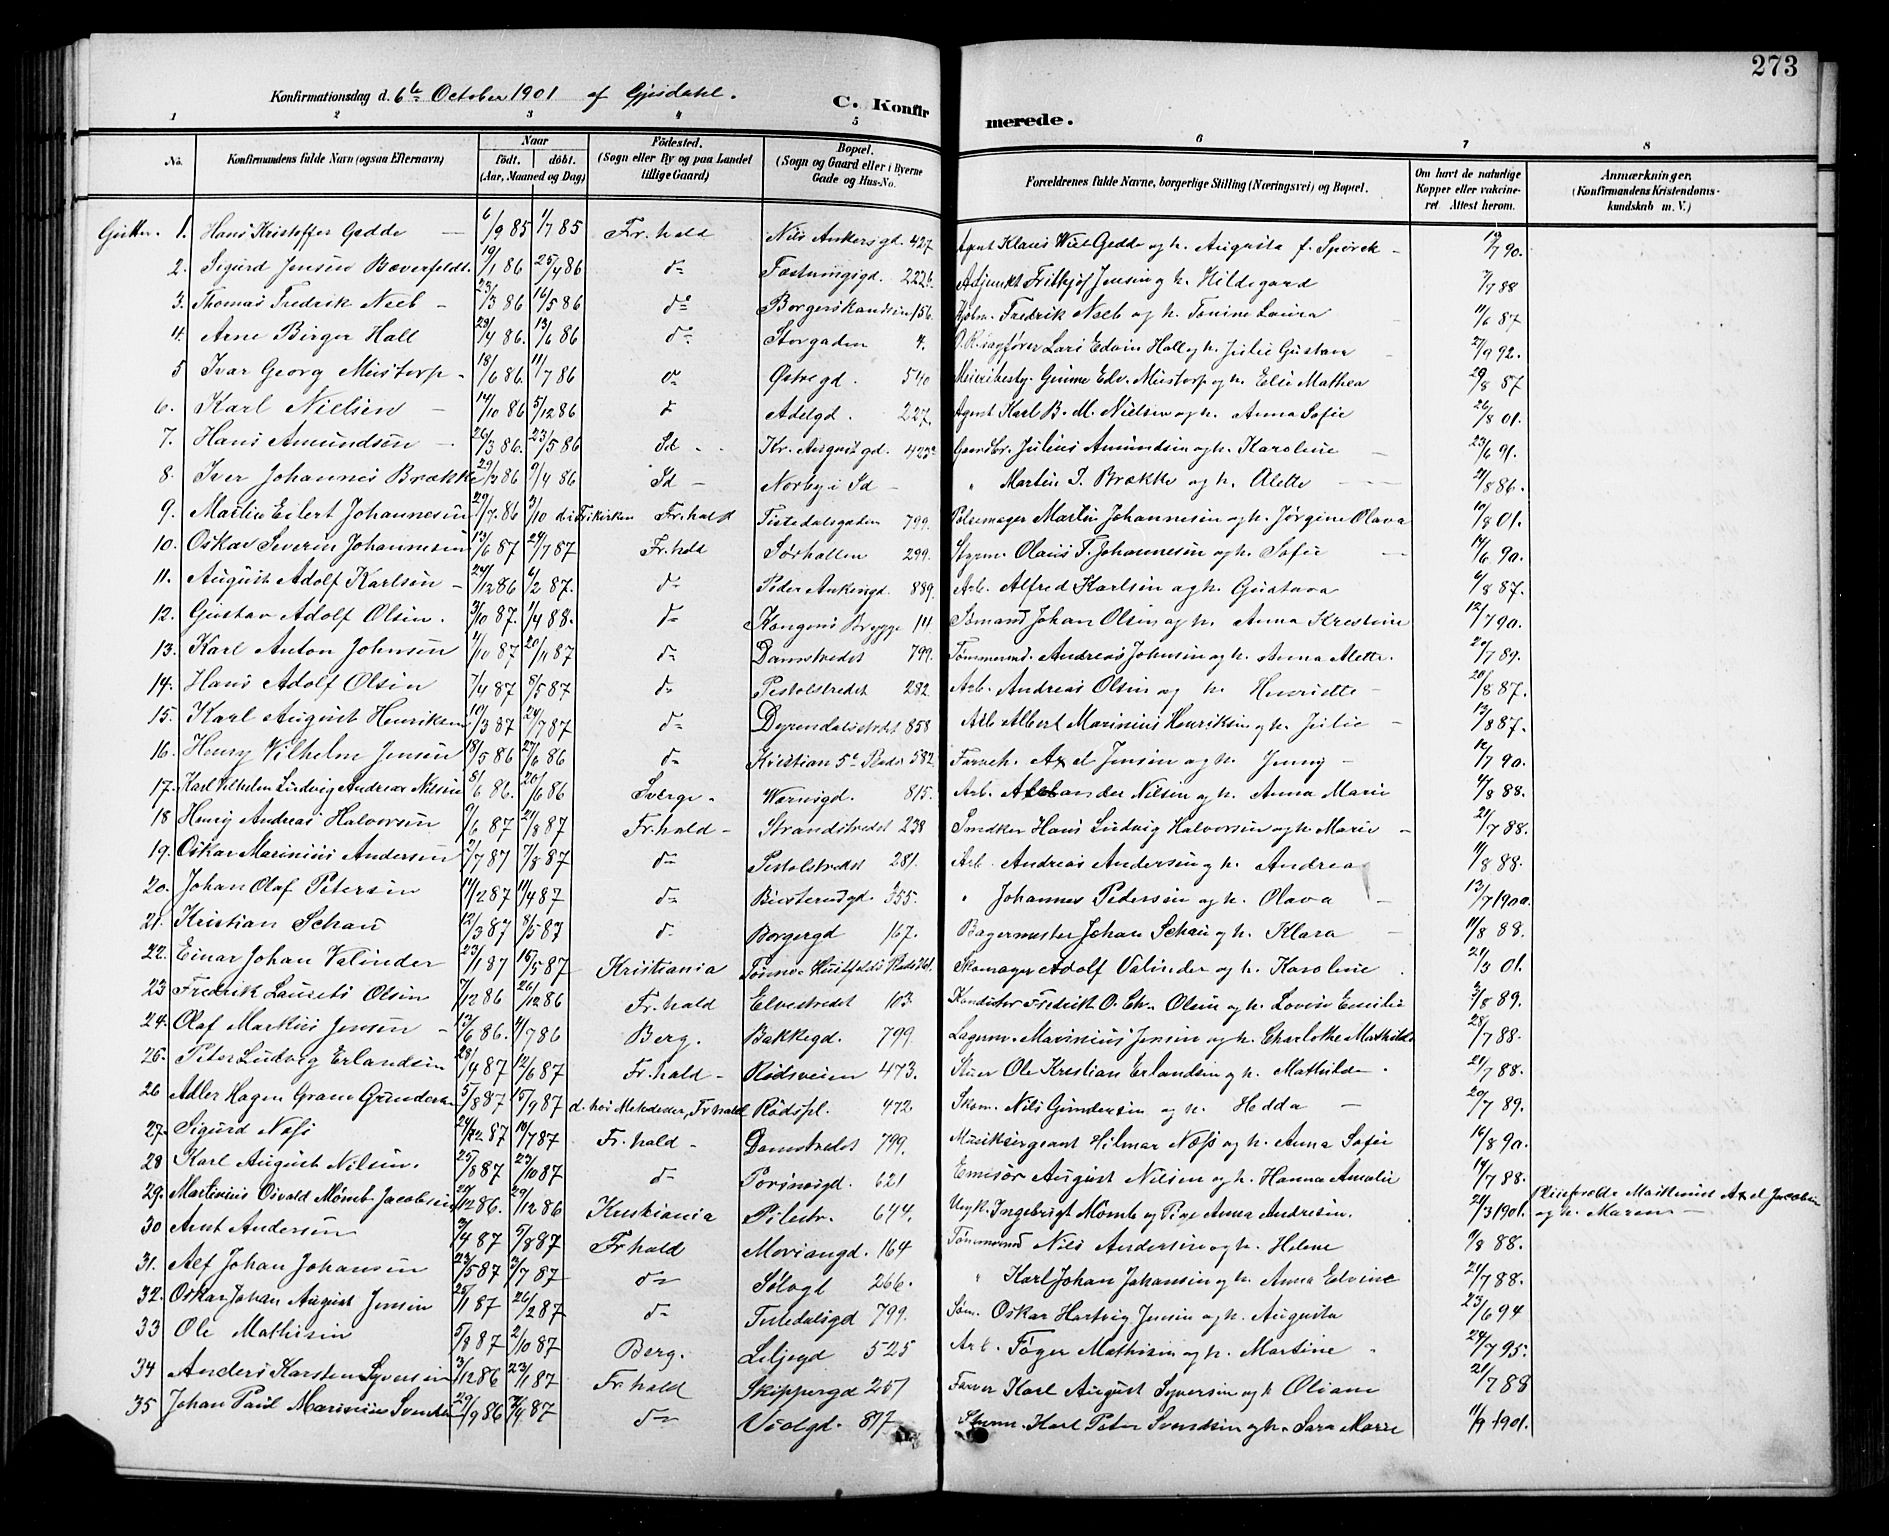 273
Konfirmationsdag d. 6te October 1901 af Gjesdahl.
C. Konfirmerede.
1 2 3 4 5 6 7 8
No.
Konfirmandens fulde Navn (ogsaa Efternavn)
Naar
født. døbt.
(Aar, Maaned og Dag)
Fødested.
(Sogn eller By og paa Landet tillige Gaard)
Bopæl.
(Sogn og Gaard eller i Byerne Gade og Hus-No.
Forældrenes fulde Navne, borgerlige Stilling (Næringsvei) og Bopæl.
Om havt de naturlige Kopper eller vakcineret. Attest herom.
Anmærkninger.
(Konfirmandens Kristendomskundskab m. V.)
Gutter. 1. Hans Kristoffer Gedde 6/9 85 1/7 85 Fr.hald Nils Ankersgd. 427. Agent Klaus Wiel Gedde og h. Augusta f. Spørck 7 90.
2. Sigurd Jensen Bæverfeldt 19/1 86 25/4 86 do Fæstningsgd. 222 Adjunkt Fritkjof Jensen og h. Hildegard 7/7 88
3. Thomas Fredrik Neeb 23/3 86 16/5 86 do Borgerskandsen 156. Fredrik Neeb og h. Tonine Laura 11/6 87
4. Arne Birger Hall 23/4 86. 13/6 86 do Storgaden 4. O.R.sagfører Lars Edvin Hall og h. Julie Gustava 27/9 92.
5 Ivar Georg Mustorp 18/6 86. 11/7 86 do Østre gd. 540 Meieribesty. Gunne Edv. Mustorp og h. Elie Mathea 29/8 87
6. Karl Nielsen 14/10 86 5/12 86 do Adelgd. 227. Agent Karl B. M. Nielsen og h. Anna Sofie 26/8 01.
7. Hans Amundsen 26/3 86. 23/5 86 Id Kr. Augustgd. 423 Gaardbr. Julius Amundsen og h. Karoline 23/6 91.
8. Iver Johannes Brække 29/1 86 9/4 86 Id Norby i Id " Martin I. Brække og h. Alette 21/8 86.
9. Martin Eilert Johannesen 29/7 86 3/10 d. i Frikirken Fr.hald Tistedalsgaden 799. Pølsemager Martin Johannesen og h. Jørgine Olava 10/8 01.
10. Oskar Severin Johannesen 13/6 87 24/7 87 Fr.hald Sørhalten 299. Styrm. Olaus T. Johannesen og h. Sofie 14/6 90.
11. August Adolf Karlsen 24/12 86 6/2 87. do Peder Ankersgd. 889. Arb. Alfred Karlsen og h. Gustava 6/8 87.
12. Gustav Adolf Olsen. 3/10 87. 1/4 88. do Kongens Brygge 111. Sømand Johan Olsen og h. Anna Kristine 12/7 90.
13. Karl Anton Johnsen 1/10 87 20/11 87 do Damstredet 799. Tømmermd. Andreas Johnsen og h. Anna Mette. 20/7 89.
14. Hans Adolf Olsen 7/4 87 8/5 87 do Pestolstredet 282. Arb. Andreas Olsen og h. Henriette 20/8 87.
15. Karl August Henriksen 10/3 87 24/7 87 do Dyrendalsstredet 858 Arb. Albert Marinius Henriksen og h. Julie 13/8 87.
16. Henry Vilhelm Jensen 18/5 86 27/6 86 do Kristian 5te Plads 582 Farveh. Axel Jensen og h. Jenny 12/7 90.
17. Karl Vilhelm Ludvig Andreas Nilsen 8/6 86. 20/6 86 Sverge Wærnsgd. 815. Arb. Alexander Nilsen og h. Anna Marie 4/8 88.
18 Henry Andreas Halvorsen 9/6 87 21/8 87 Fr.hald Strandstredet 238 Snedker Hans Ludvig Halvorsen og h. Marie 21/7 88.
19. Oskar Marinius Andersen 2/7 87 7/8 87 do Pestolstredet 281. Arb. Andreas Andersen og h. Andrea 11/8 88.
20. Johan Olaf Petersen 14/2 87 11/4 87 do Busterudgd 355. " Johannes Pedersen og h. Olava 13/7 1900.
21. Kristian Schau 12/3 87 8/5 87 do Borgergd 167. Bagermester Johan Schau og h. Klara 11/8 88.
22. Einar Johan Valinder 23/1 87 16/5 87 Kristiania Tønnes Huitfeldts Plads 261. Skomager Adolf Valinder og h. Karoline 21/3 01.
23 Fredrik Laurets Olsen 7/12 86 26/12 86 Fr.hald Elvestredet 103. Konditor Fredrik O. Ch. Olsen og h. Lovise Emilie 3/8 89.
24. Olaf Markus Jensen 13/6 86. 4/7 86 Berg. Bakkegd. 799. Lagerm. Marinius Jensen og h. Charlotte Mathilde 28/7 88.
25. Peter Ludvig Erlandsen 28/4 87 12/6 87 Fr.hald Rødsveien 473. Stuer Ole Kristian Erlandsen og h. Mathilde 21/7 88.
26 Adler Hagen Gram Gundersen 5/8 87 15/9 87 d. hos Metodister, Fr.hald Rødspl. 472 Skom. Nils Gundersen og h. Hedda 20/7 89.
27. Sigurd Næss 24/12 87 10/7 87 Fr.hald Damstredet 799. Musiksergeant Hilmar Næss og h. Anna Sofie 16/8 90.
28 Karl August Nilsen. 25/8 87 23/10 87 do Porsnesgd. 621 August Nilsen og h. Hanna Amalie 14/7 88.
29. Martinius Osvald Mømb Jacobsen 20/12 86. 29/12 86 Kristiania Pilestr. 644. Ugk. Ingebrigt Mømb og Pige Anna Andresen. 21/3 1901. Pleieforældre Martinius Axel Jacobsen og h. Maren
30 Arnt Andersen 3/4 87 5/8 87 Fr.hald Moriangd. 164 Tømmermd Nils Andersen og h. Helene 9/8 88.
31. Alf Johan Johansen 23/5 87 3/7 87 do Sølvgt 266. " Karl Johan Johansen og h. Anna Edvine 21/7 88.
32. Oskar Johan August Jensen 28/1 87 26/2 87 do Tistedalsgd 799. Søm. Oskar Hartvig Jensen og h. Augusta 23/6 94
33 Ole Mathisen 5/8 87 2/10 87 Berg. Liljegd 525 Arb. Tøger Mathisen og h. Martine 24/7 95.
34 Anders Karsten Syversen 3/12 86 23/1 87 Fr.hald Skippergd 257 Farver Karl August Syversen og h Oliane 21/7 88
35 Johan Paul Marinius Svendsen 29/9 86 4/9 87 do Violgd. 877 Styrm. Karl Peter Svendsen og h. Sara Marie 11/9 1901.